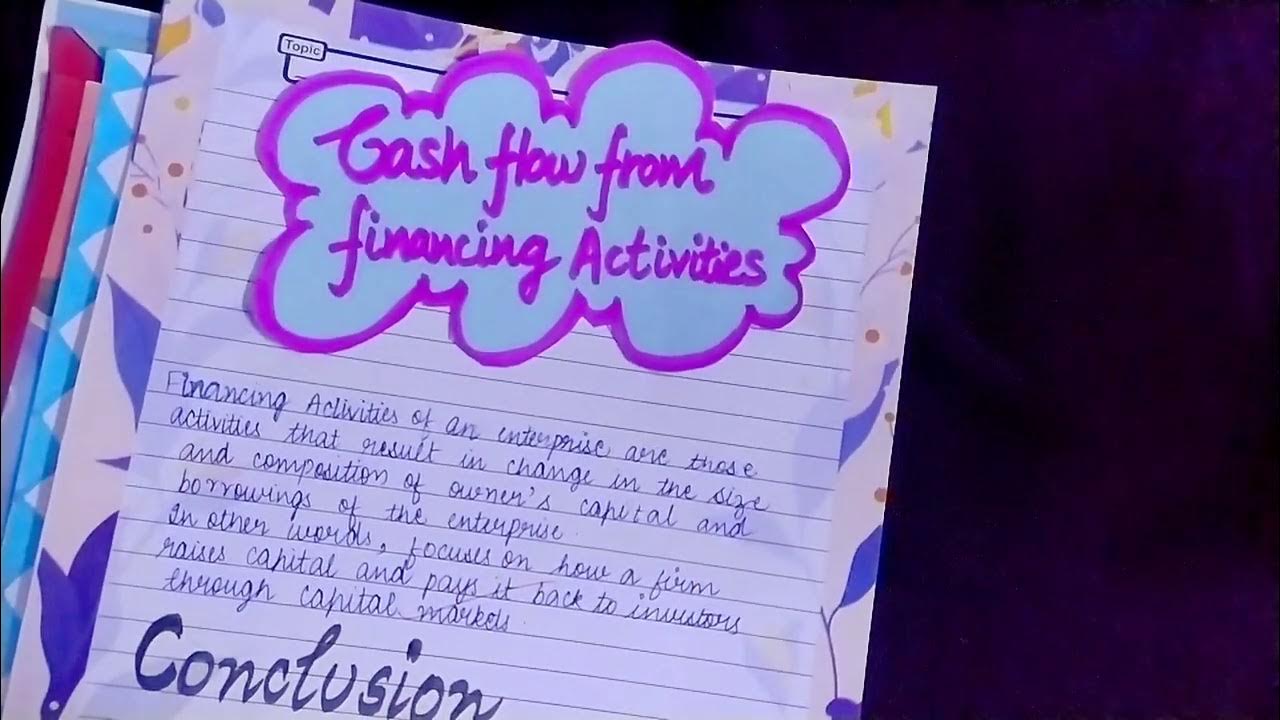 Topic
Cash flow from
financing Activities
Financing Activities of an enterprise are those
activities that result in change in the size
and composition of owner's capital and
borrowings of the enterprise.
In other words, focuses on how a firm
raises capital and pays it back to investors
through capital markets.
Conclusion